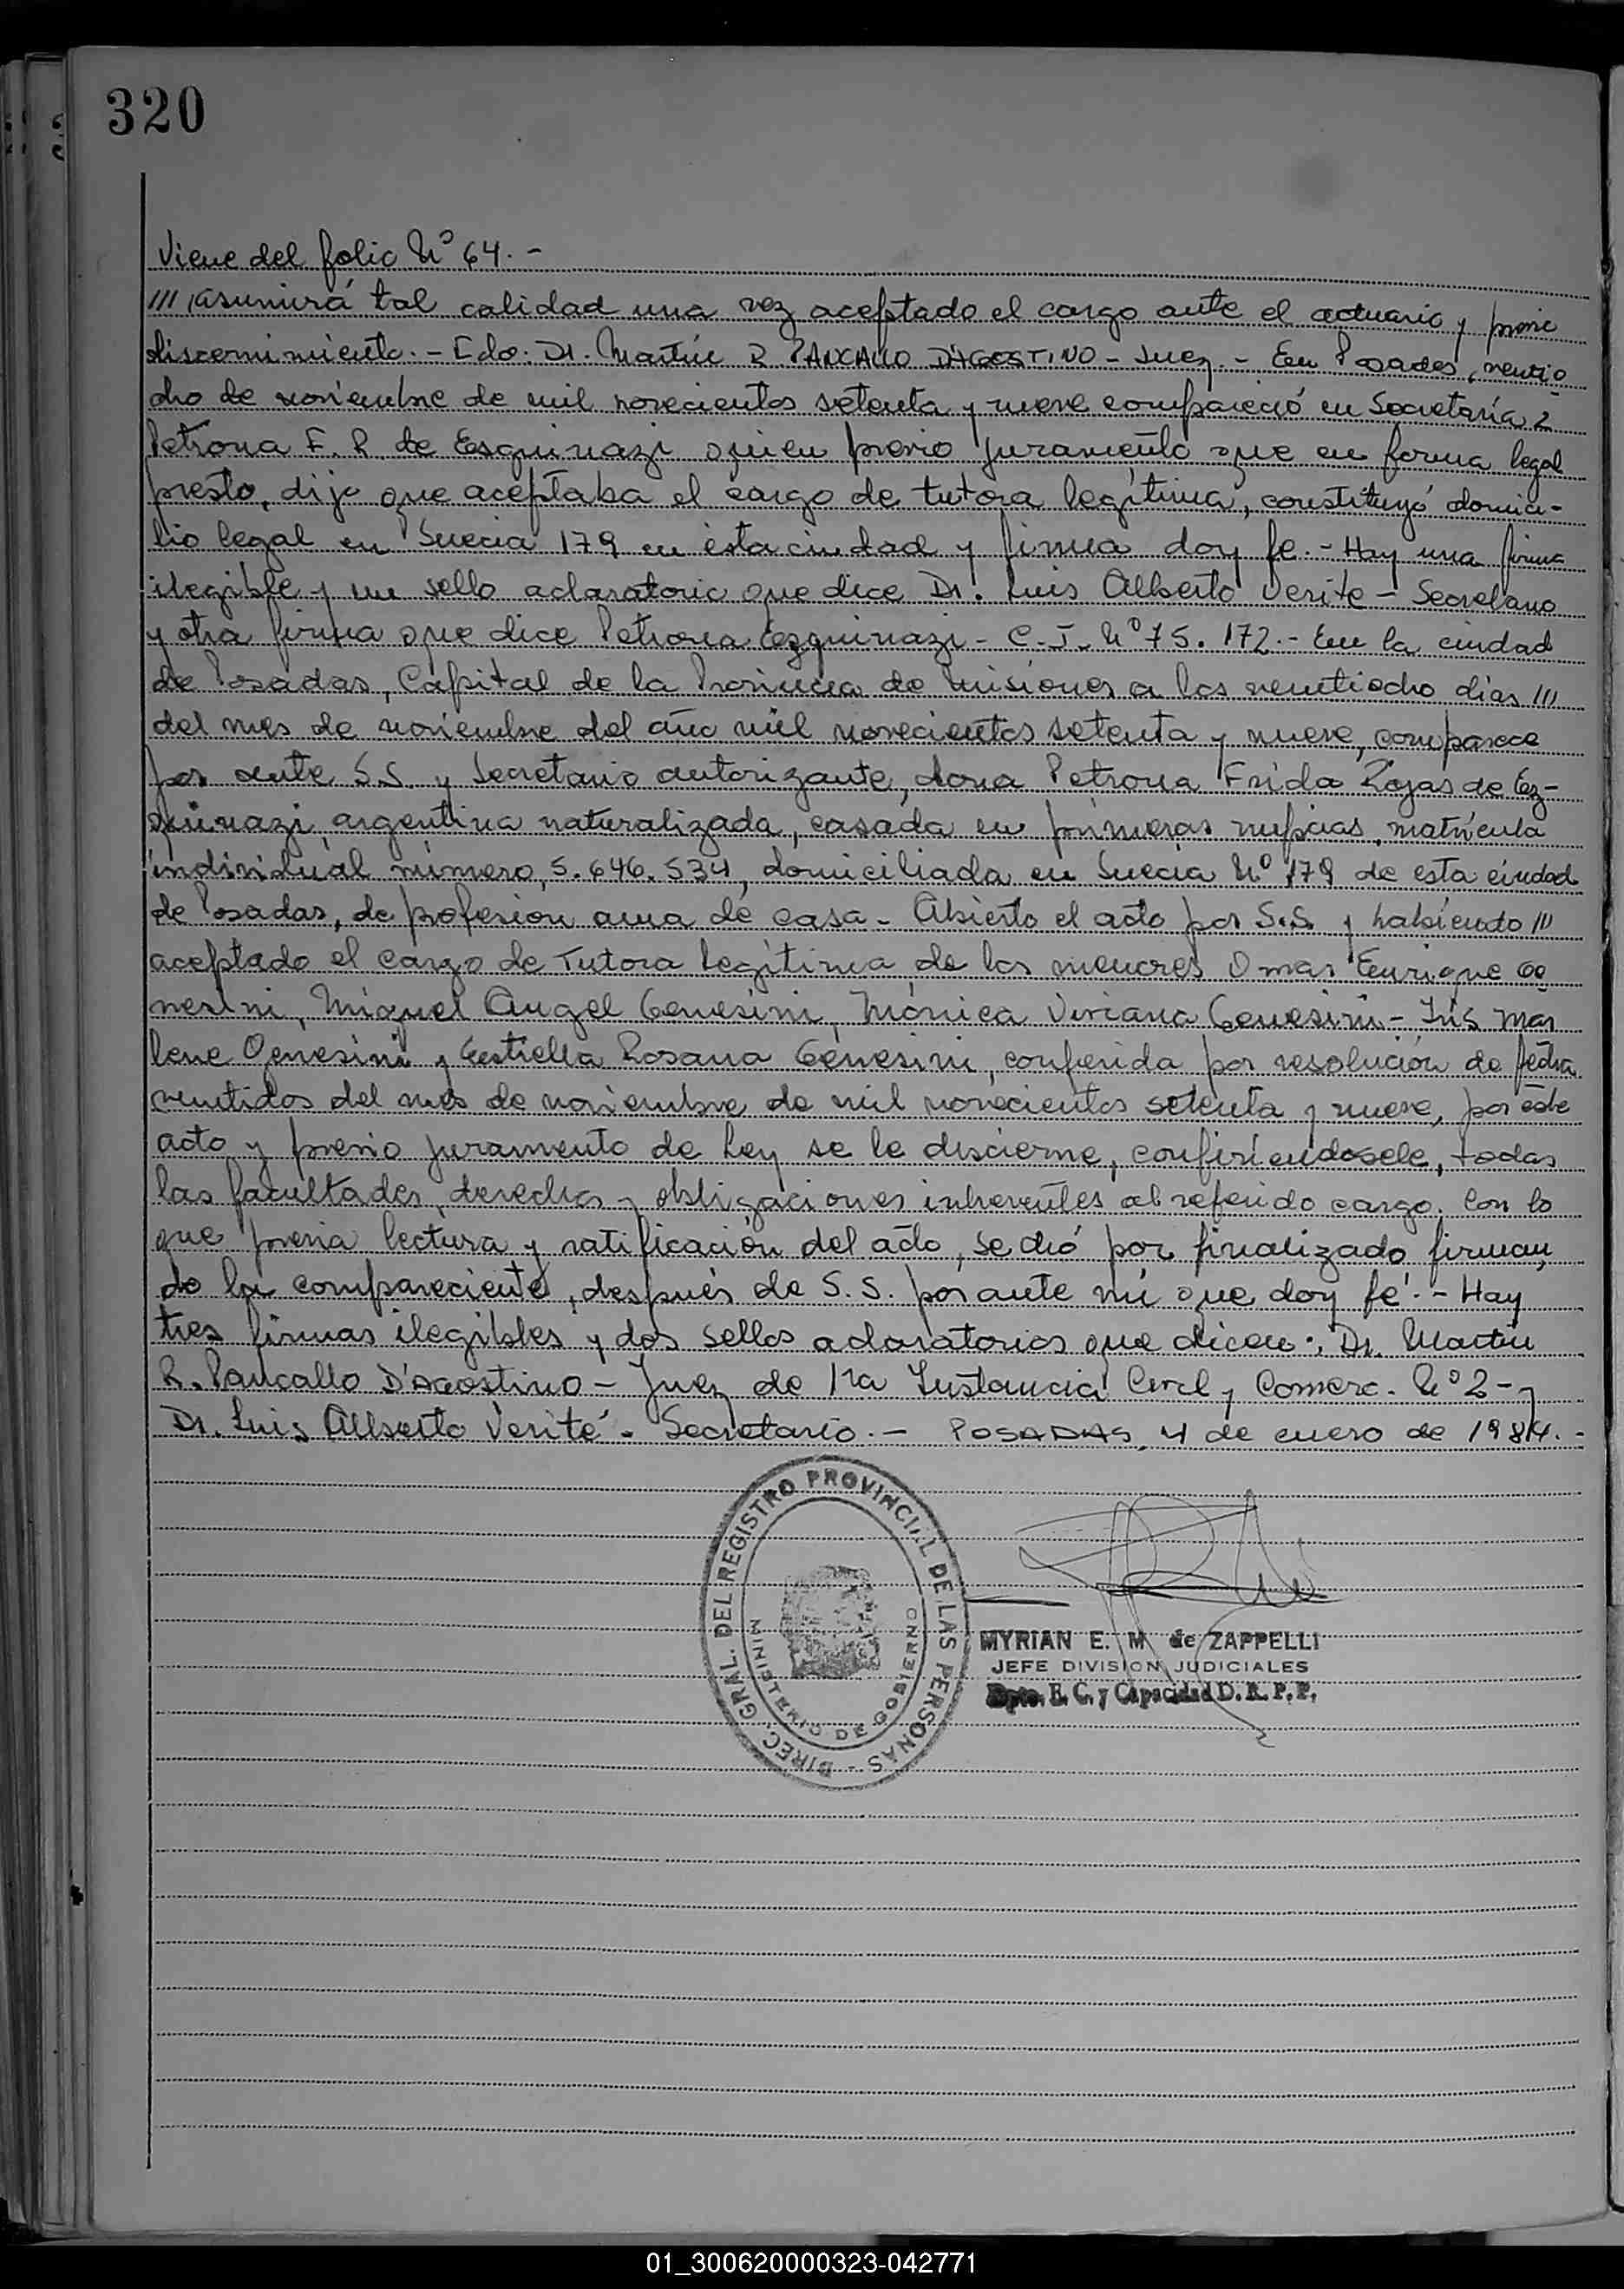 320
Viene del folio Nº 64.-
/// asumirá tal calidad una vez aceptado el cargo ante el actuario y previo
discernimiento.- Fdo: Dr. Martín R. PANCALLO D'AGOSTINO - Juez.- En Posadas, ventio
cho de noviembre de mil novecientos setenta y nueve compareció en Secretaría 2
Petrona F. R. de Esquinazi quien previo juramento que en forma legal
presto, dijo que aceptaba el cargo de tutora legítima, constituyó domici-
lio legal en Suecia 179 en esta ciudad y firma doy fe.- Hay una firma
ilegible y un sello aclaratorio que dice Dr. Luis Alberto Verite - Secretario
y otra firma que dice Petrona Ezquinazi - C.I. Nº 75.172.- En la ciudad
de Posadas, Capital de la Provincia de Misiones a los veintiocho días ///
del mes de noviembre del año mil novecientos setenta y nueve, comparece
por ante S.S. y Secretario autorizante, dona Petrona Frida Rojas de Ez-
quinazi argentina naturalizada, casada en primeras nupcias, matrícula
individual número, 5.646.534, domiciliada en Suecia Nº 179 de esta ciudad
de Posadas, de profesion ama de casa - Abierto el acto por S.S. y habiendo ///
aceptado el cargo de Tutora Legítima de los menores Omar Enrique Ge
nesini, Miguel Angel Genesini, Mónica Viviana Genesini - Iris Mar
lene Genesini y Estrella Rosana Genesini, conferida por resolución de fecha
ventidos del mes de noviembre de mil novecientos setenta y nueve, por éste
acto y previo juramento de Ley se le discierne, confiriéndosele, todas
las facultades, derechos y obligaciones inherentes al referido cargo. Con lo
que previa lectura y ratificación del acto, se dió por finalizado firman,
do la compareciente, después de S.S. por ante mí que doy fé.- Hay
tres firmas ilegibles y dos sellos aclaratorios que dicen: Dr. Martín
R. Pancallo D'Agostino - Juez de 1ra Instancia Civil y Comerc. Nº 2 - y
Dr. Luis Alberto Verité - Secretario.- POSADAS, 4 de enero de 1984.-
DIREC. GRAL. DEL REGISTRO PROVINCIAL DE LAS PERSONAS -
MINISTERIO DE GOBIERNO
MYRIAN E. M. de ZAPPELLI
JEFE DIVISION JUDICIALES
Dpto. E. C. y Capacidad D. R. P. P.
01_300620000323-042771